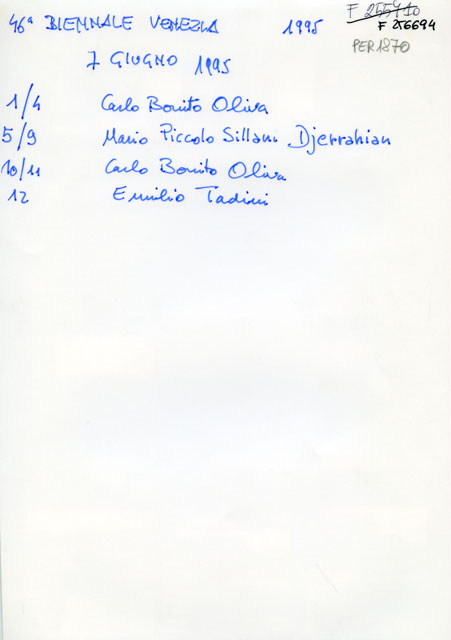 46ª BIENNALE VENEZIA 1995
F 255410
F 256694
PER1870
7 GIUGNO 1995
1/4 Carlo Bonito Oliva
5/9 Mario Piccolo Sillani Djerrahian
10/11 Carlo Bonito Oliva
12 Emilio Tadini